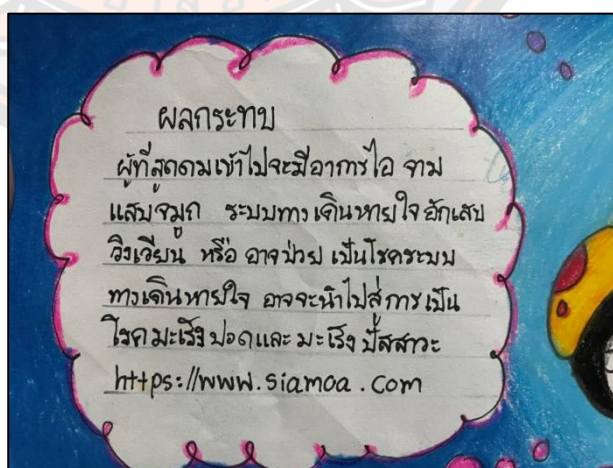 ผลกระทบ
ผู้ที่สูดดมเข้าไปจะมีอาการไอ จาม
แสบจมูก ระบบทางเดินหายใจอักเสบ
วิงเวียน หรือ อาจป่วย เป็นโรคระบบ
ทางเดินหายใจ อาจจะนำไปสู่การเป็น
โรคมะเร็งปอดและมะเร็ง ปัสสาวะ
https://www.siamoa.com